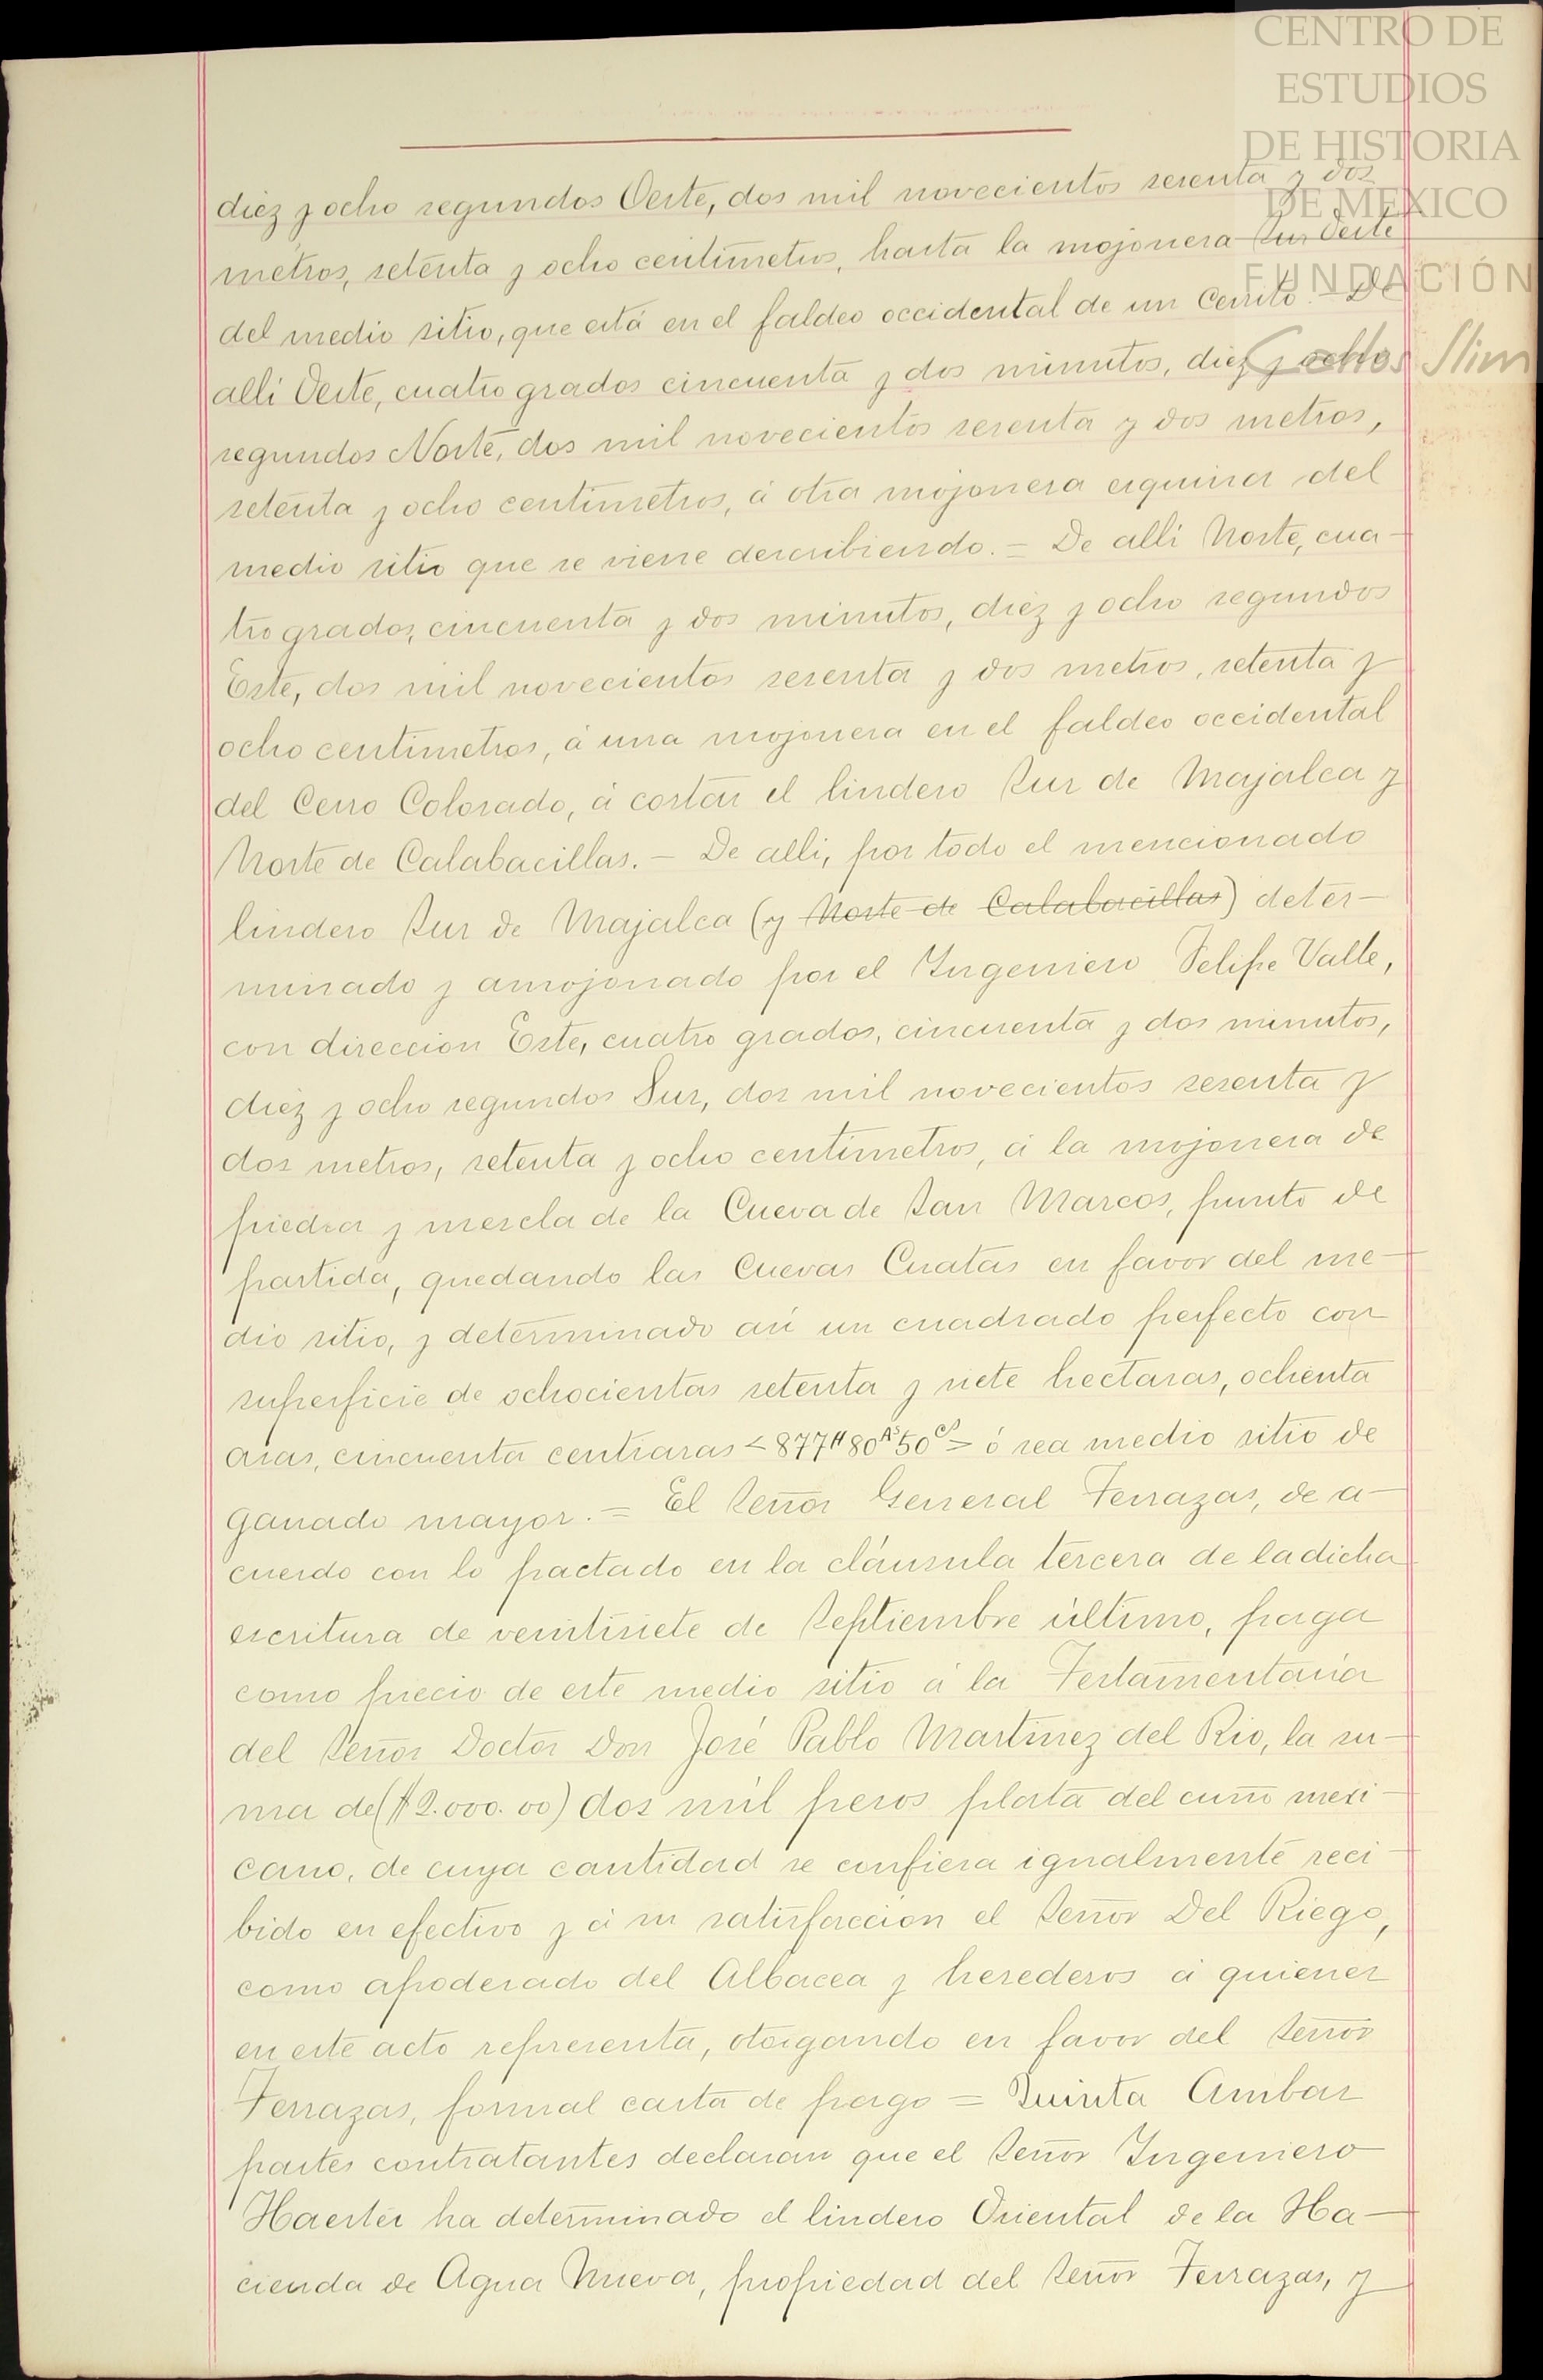 CENTRO DE
ESTUDIOS
DE HISTORIA
DE MEXICO
FUNDACIÓN
Carlos Slim
diez y ocho segundos Oeste, dos mil novecientos sesenta y dos
metros, setenta y ocho centimetros, hasta la mojonera Sur Oeste
del medio sitio, que está en el faldeo occidental de un Cerrito. - De
alli Oeste, cuatro grados cincuenta y dos minutos, diez y ocho
segundos Norte, dos mil novecientos sesenta y dos metros,
setenta y ocho centimetros, á otra mojonera esquina del
medio sitio que se viene describiendo. = De alli Norte, cua-
tro grados, cincuenta y dos minutos, diez y ocho segundos
Este, dos mil novecientos sesenta y dos metros, setenta y
ocho centimetros, á una mojonera en el faldeo occidental
del Cerro Colorado, á cortar el lindero Sur de Majalca y
Norte de Calabacillas. - De alli, por todo el mencionado
lindero Sur de Majalca (y Norte de Calabacillas) deter-
minado y amojonado por el Ingeniero Felipe Valle,
con direccion Este, cuatro grados, cincuenta y dos minutos,
diez y ocho segundos Sur, dos mil novecientos sesenta y
dos metros, setenta y ocho centimetros, á la mojonera de
piedra y mescla de la Cueva de San Marcos, punto de
partida, quedando las Cuevas Cuatas en favor del me-
dio sitio, y determinado asi un cuadrado perfecto con
superficie de ochocientas setenta y siete hectaras, ochenta
aras, cincuenta centiaras <877H 80As 50Cs> ó sea medio sitio de
ganado mayor. = El Señor General Terrazas, de a-
cuerdo con lo pactado en la cláusula tercera de la dicha
escritura de veintisiete de Septiembre último, paga
como precio de este medio sitio á la Testamentaria
del Señor Doctor Don José Pablo Martinez del Rio, la su-
ma de ($2.000.00) dos mil pesos plata del cuño mexi-
cano, de cuya cantidad se confiesa igualmente reci-
bido en efectivo y á su satisfaccion el Señor Del Riego,
como apoderado del Albacea y herederos á quienes
en este acto representa, otorgando en favor del Señor
Terrazas, formal carta de pago = Quinta Ambas
partes contratantes declaran que el Señor Ingeniero
Haerter ha determinado el lindero Oriental de la Ha-
cienda de Agua Nueva, propiedad del Señor Terrazas, y